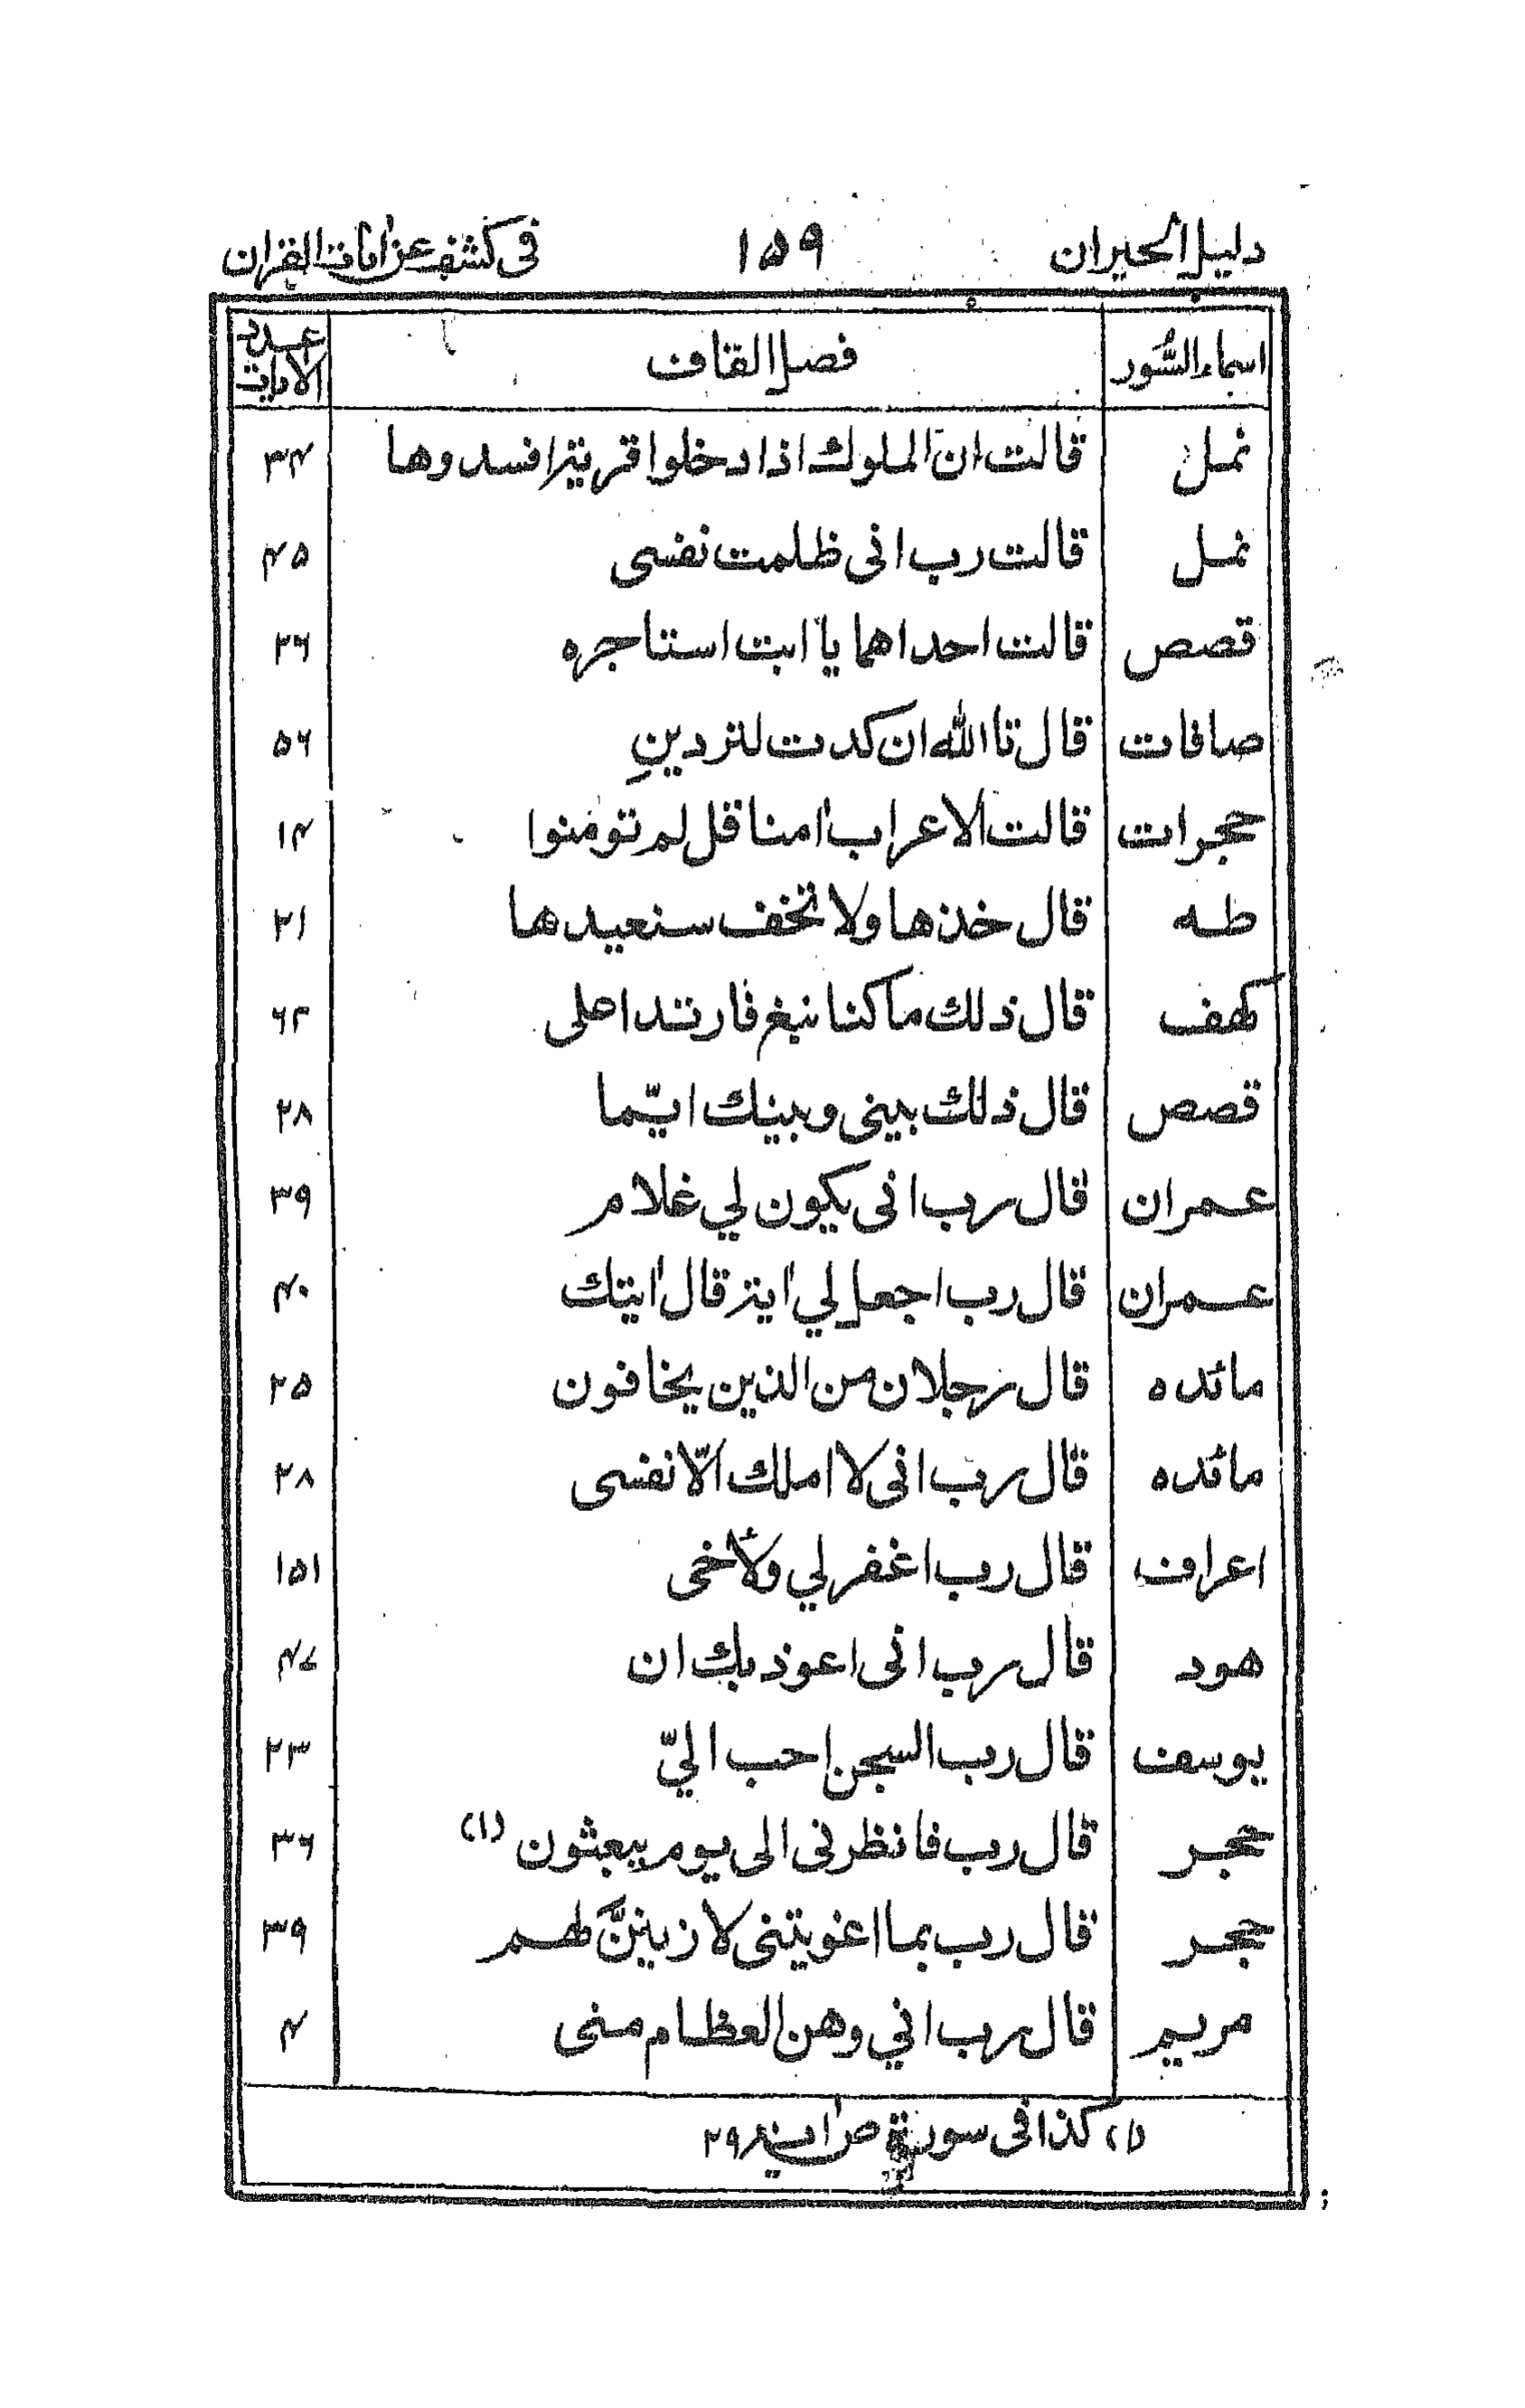 دليل الحيران ١٥٩ فى كشف عن ايات القران
اسماء السُّور فصل القاف عدد الايات
نمل قالت ان الملوك اذا دخلوا قرية افسدوها ٣٤
نمل قالت رب انى ظلمت نفسى ٤٥
قصص قالت احداهما يا ابت استاجره ٢٦
صافات قال تا الله ان كدت لتردينِ ٥٦
حجرات قالت الاعراب اٰمنا قل لم تومنوا ١٤
طه قال خذها ولا تخف سنعيدها ٢١
كهف قال ذلك ما كنا نبغ فارتدا على ٦٣
قصص قال ذٰلك بينى وبينك ايّما ٢٨
عمران قال رب انى يكون لي غلام ٣٩
عمران قال رب اجعل لي اٰية قال اٰيتك ٤٠
مائده قال رجلان من الذين يخافون ٢٥
مائده قال رب انى لا املك الّا نفسى ٢٨
اعراف قال رب اغفر لي ولأخى ١٥١
هود قال رب انى اعوذ بك ان ٤٧
يوسف قال رب السجن احب اليّ ٢٣
حجر قال رب فانظرنى الى يوم يبعثون (١) ٣٦
حجر قال رب بما اغويتنى لازيننَّ لهم ٣٩
مريم قال رب اني وهن العظام منى ٤
(١) كذا فى سورة ص اٰية ٢٩